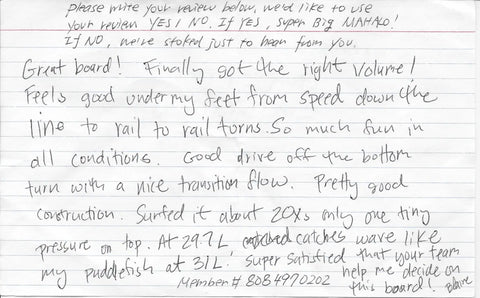 please write your review below, we'd like to use
your review YES / NO. If YES, super Big MAHALO!
If NO, we're stoked just to hear from you.
Great board! Finally got the right volume!
Feels good under my feet from speed down the
line to rail to rail turns. So much fun in
all conditions. Good drive off the bottom
turn with a nice transition flow. Pretty good
construction. Surfed it about 20xs only one tiny
pressure on top. At 29.7L catches wave like
my puddlefish at 31L! super satisfied that your team
help me decide on
this board! Blaine
Member # 8084970202